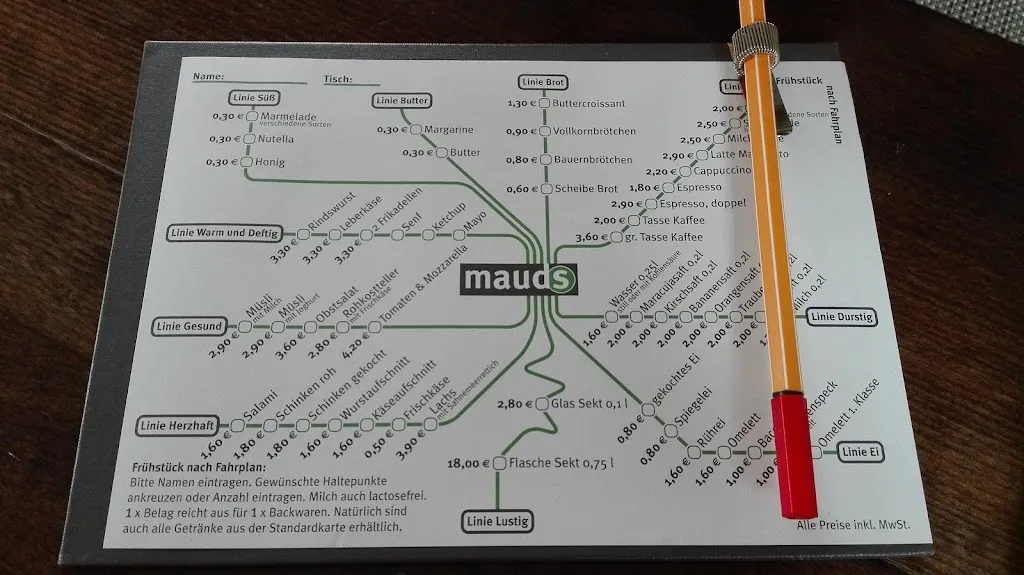 Name:
Tisch:
Frühstück
nach Fahrplan
Linie Süß
0,30 € Marmelade
verschiedene Sorten
0,30 € Nutella
0,30 € Honig
Linie Butter
0,30 € Margarine
0,30 € Butter
Linie Brot
1,30 € Buttercroissant
0,90 € Vollkornbrötchen
0,80 € Bauernbrötchen
0,60 € Scheibe Brot
2,00 €
2,50 €
2,50 €
2,90 € Latte
2,20 € Cappuccino
1,80 € Espresso
2,90 € Espresso, doppel
2,00 € Tasse Kaffee
3,60 € gr. Tasse Kaffee
Linie Warm und Deftig
3,30 € Rindswurst
3,30 € Leberkäse
3,30 € 2 Frikadellen
Senf
Ketchup
Mayo
mauds
Linie Gesund
2,90 € Müsli
mit Milch
2,90 € Müsli
mit Joghurt
3,60 € Obstsalat
2,80 € Rohkostteller
mit Frischkäse
4,20 € Tomaten & Mozzarella
1,60 € Wasser 0,25l
still oder mit Kohlensäure
2,00 € Maracujasaft 0,2l
2,00 € Kirschsaft 0,2l
2,00 € Bananensaft 0,2l
2,00 € Orangensaft
2,00 €
Milch 0,2l
Linie Durstig
Linie Herzhaft
1,60 € Salami
1,80 € Schinken roh
1,80 € Schinken gekocht
1,60 € Wurstaufschnitt
1,60 € Käseaufschnitt
0,50 € Frischkäse
3,90 € Lachs
mit Sahnemeerrettich
2,80 € Glas Sekt 0,1 l
18,00 € Flasche Sekt 0,75 l
Linie Lustig
0,80 € gekochtes Ei
0,80 € Spiegelei
1,60 € Rührei
1,60 € Omelett
1,00 €
1,00 €
Omelett 1. Klasse
Linie Ei
Frühstück nach Fahrplan:
Bitte Namen eintragen. Gewünschte Haltepunkte
ankreuzen oder Anzahl eintragen. Milch auch lactosefrei.
1 x Belag reicht aus für 1 x Backwaren. Natürlich sind
auch alle Getränke aus der Standardkarte erhältlich.
Alle Preise inkl. MwSt.